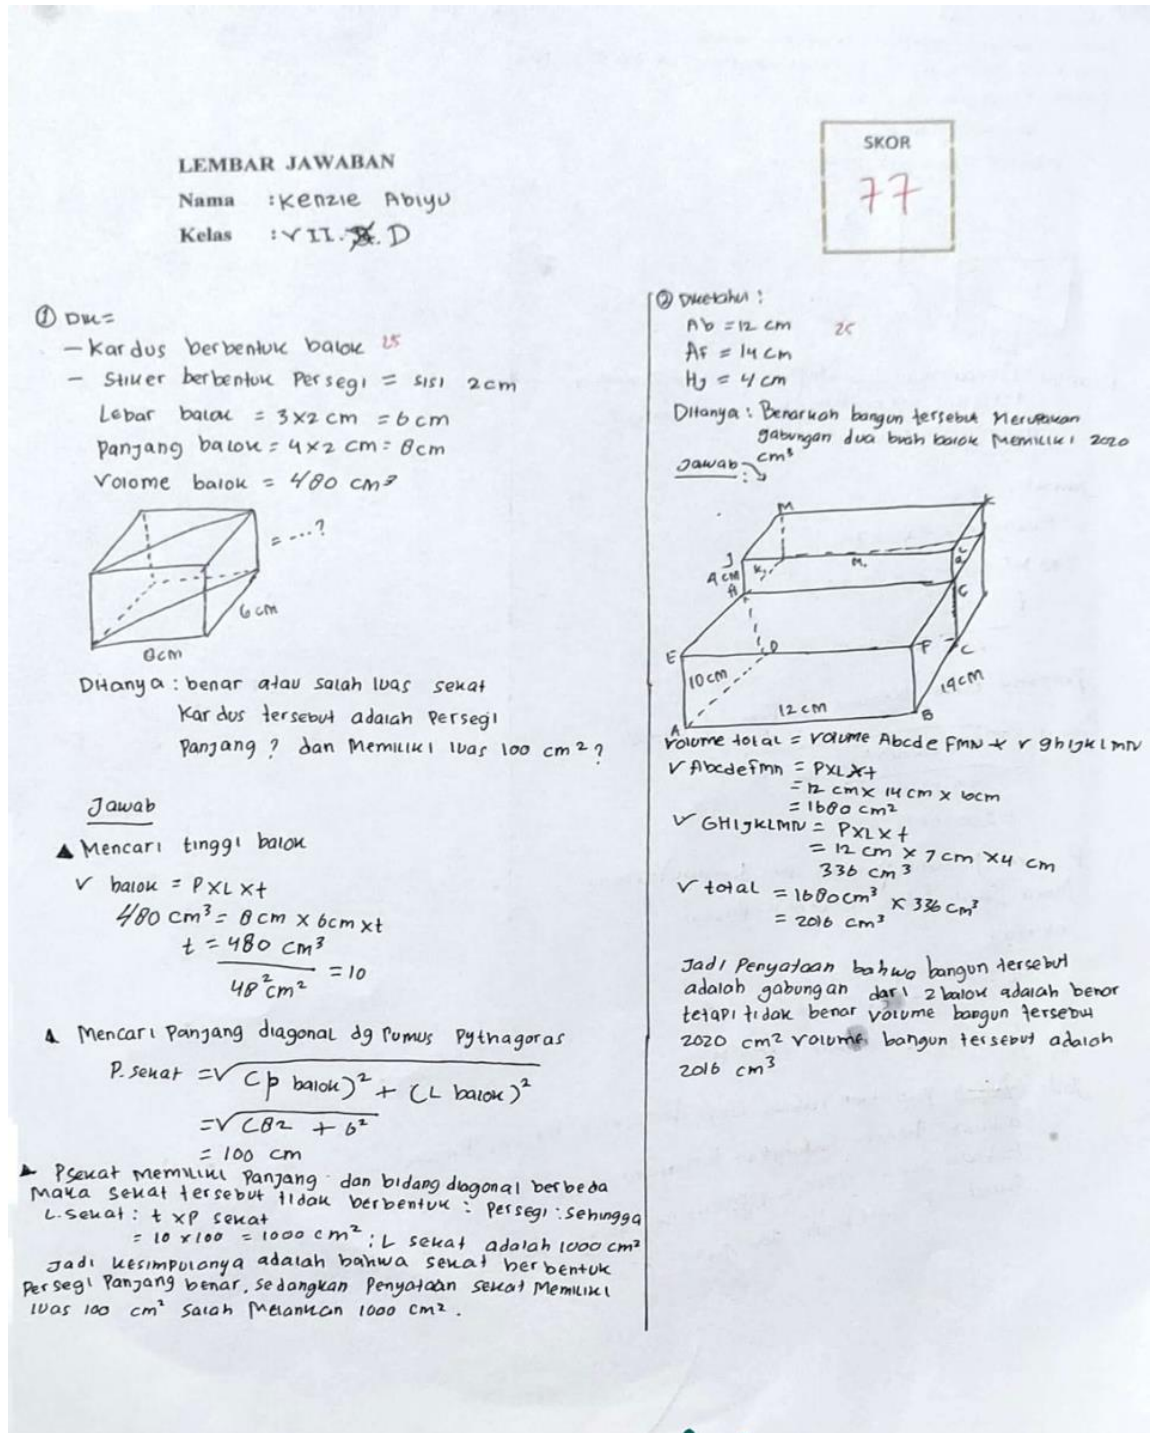 LEMBAR JAWABAN
Nama : Kenzie Abiyu
Kelas : VII. D
SKOR
77
① Dik =
- Kardus berbentuk balok 25
- Stiker berbentuk Persegi = sisi 2cm
Lebar balok = 3x2 cm = 6 cm
Panjang balok = 4x2 cm = 8cm
Volome balok = 480 cm³
= ....?
6 cm
8cm
Ditanya : benar atau salah luas sekat
Kardus tersebut adalah Persegi
Panjang ? dan Memiliki luas 100 cm² ?
Jawab
Mencari tinggi balok
V balok = PxLxt
480 cm³ = 8 cm x 6cm xt
t = 480 cm³
48 ² cm² = 10
Mencari Panjang diagonal dg rumus Pythagoras
P. sekat = √(p balok)² + (L balok)²
= √(82 + 6²
= 100 cm
Psekat memiliki Panjang dan bidang diagonal berbeda
Maka sekat tersebut tidak berbentuk : Persegi : sehingga
L. sekat : t xP sekat
= 10 x100 = 1000 cm² ; L sekat adalah 1000 cm²
Jadi kesimpulanya adalah bahwa sekat berbentuk
Persegi Panjang benar, sedangkan Penyataan sekat Memiliki
luas 100 cm² salah Melankan 1000 cm².
② Diketahui :
Ab = 12 cm 25
AF = 14 cm
Hj = 4 cm
Ditanya : Benarkah bangun tersebut Merupakan
gabungan dua buah balok Memiliki 2020
cm³
Jawab :
M
J
4 cm
H
E
D
F
G
C
10 cm
14 cm
12 cm
A
B
Volume total = Volume Abcde FMN + v ghijklmn
V Abcdefmn = PXLXt
= 12 cm x 14 cm x 10cm
= 1680 cm²
V GHIJKLMN = PXLXt
= 12 cm x 7 cm x4 cm
336 cm³
V total = 1680cm³ x 336 cm³
= 2016 cm³
Jadi Penyataan bahwa bangun tersebut
adalah gabungan dari 2 balok adalah benar
tetapi tidak benar volume bangun tersebut
2020 cm² volume bangun tersebut adalah
2016 cm³